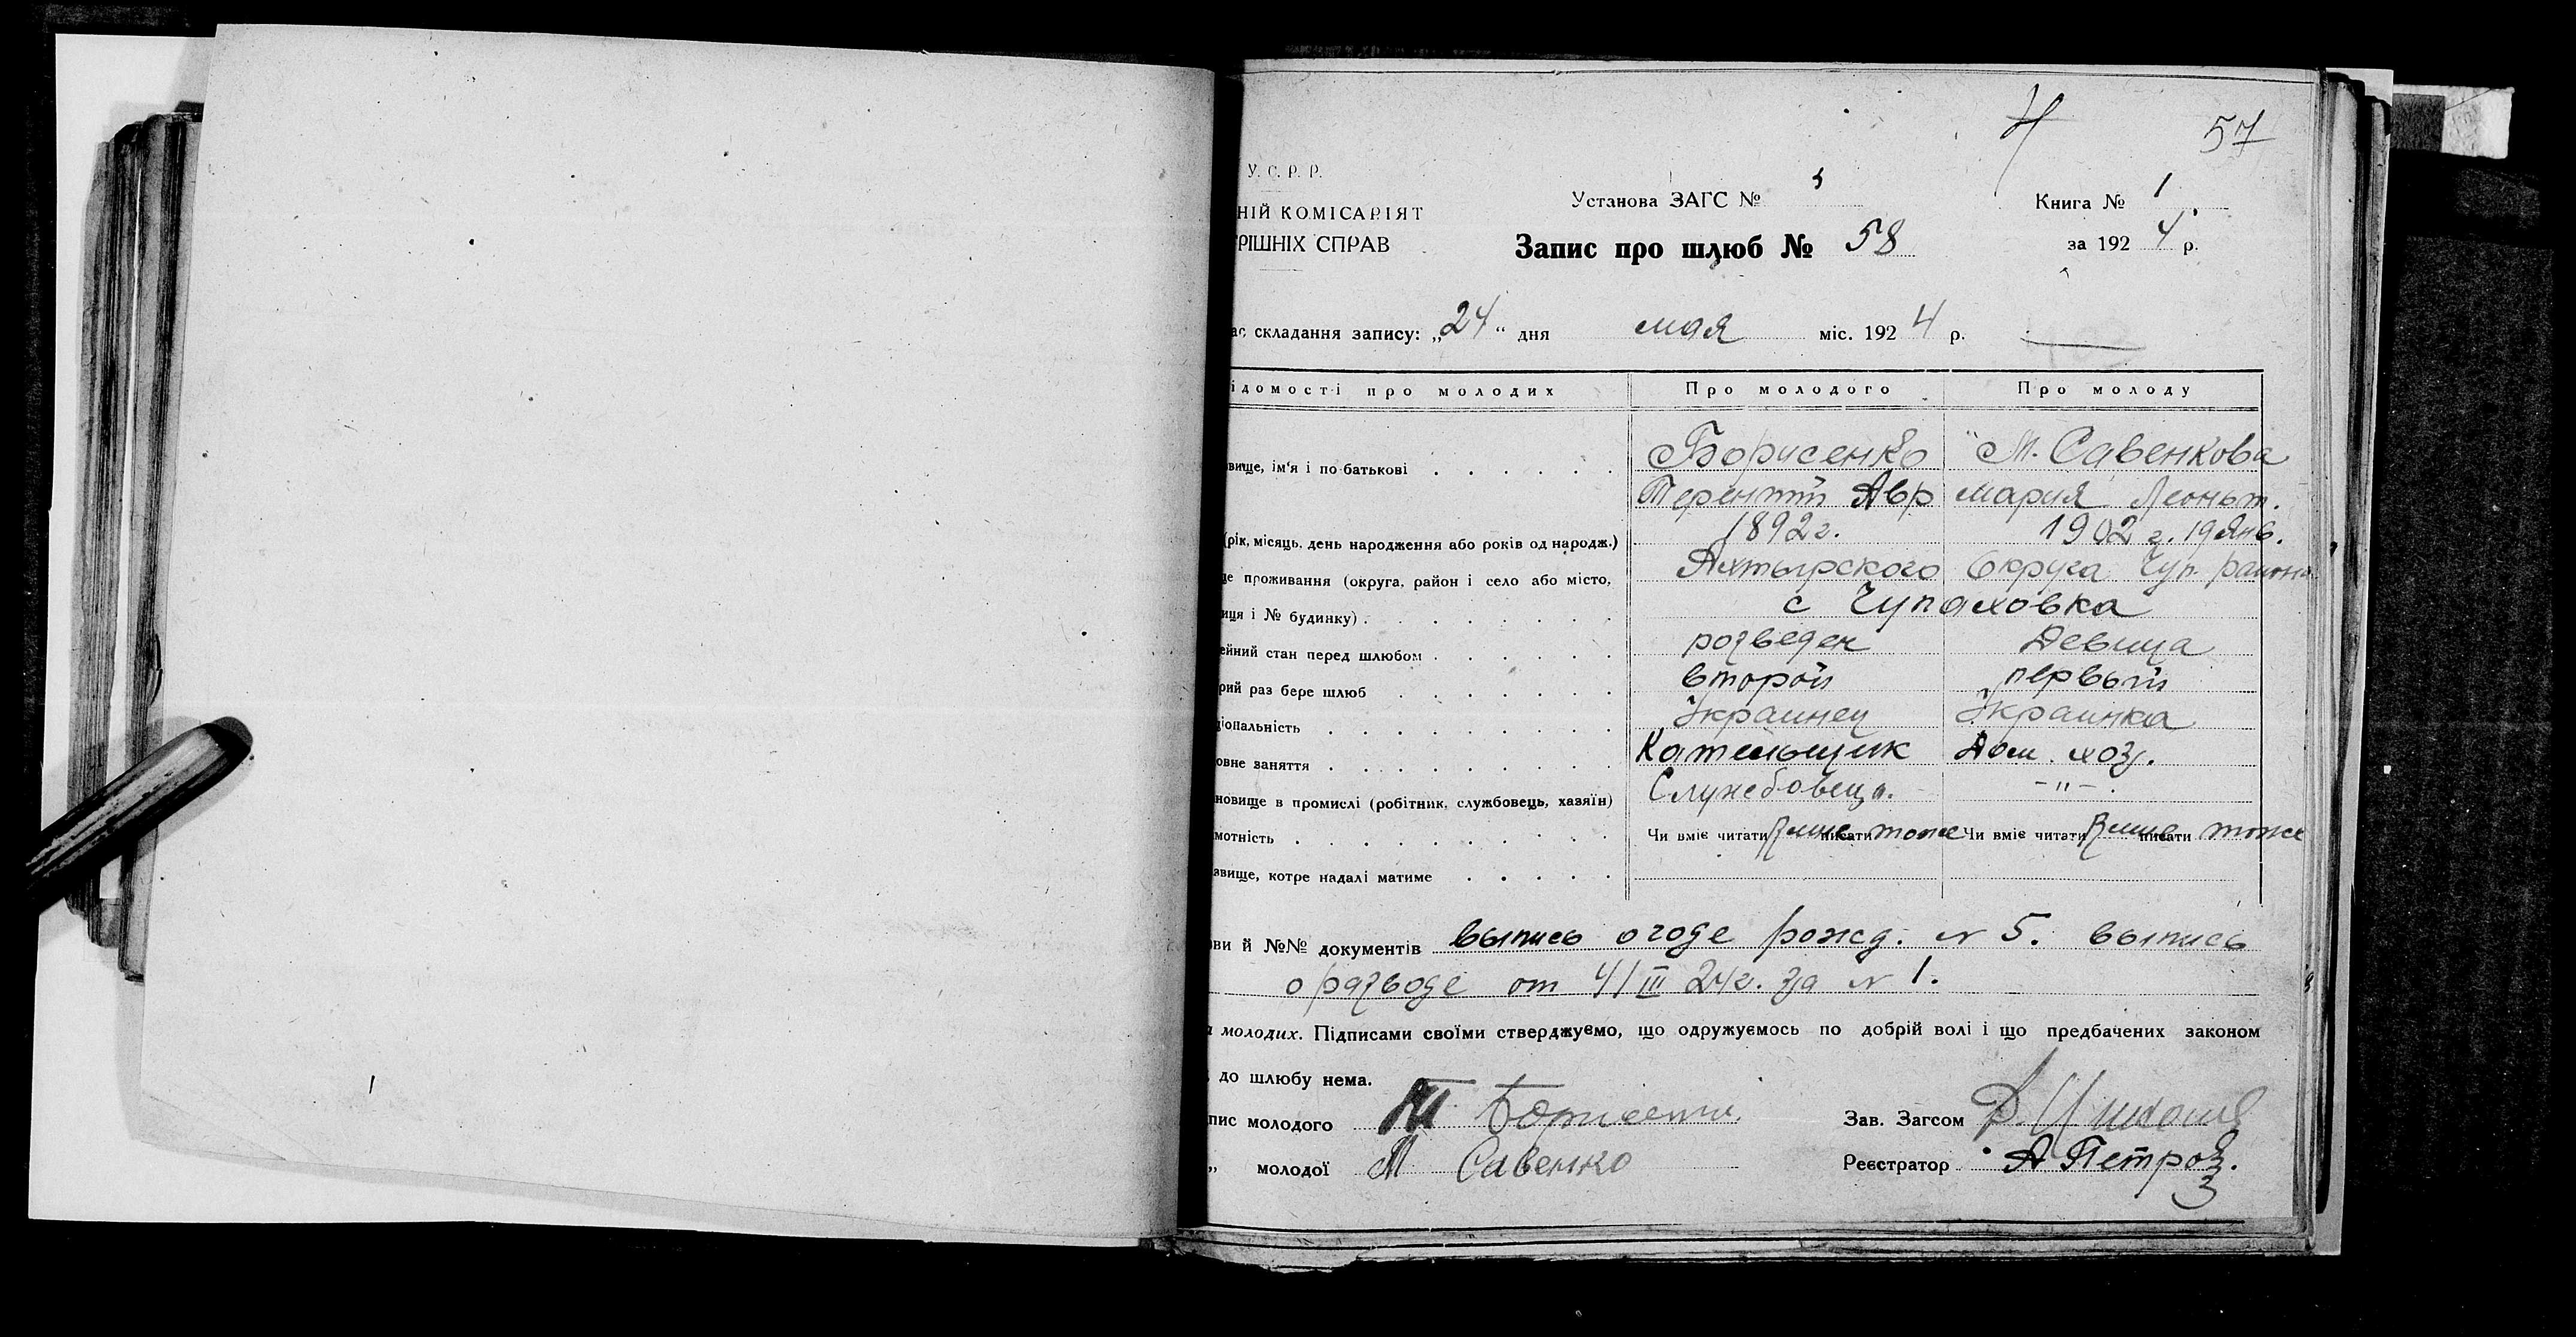 57
У. С. Р. Р.
НІЙ КОМІСАРІЯТ
РІШНІХ СПРАВ
Установа ЗАГС №
Книга № 1
за 192 4 р.
Запис про шлюб № 58
ас складання запису: „24“ дня мая міс. 192 4 р.
ідомості про молодих Про молодого Про молоду
вище, ім'я і по батькові Борисенко М. Савенкова
Терентий Авр мария Леоньт.
(рік, місяць, день народження або років од народж.) 1892 г. 1902 г. 19 Янв.
це проживання (округа, район і село або місто, Ахтырского Округа Чуп. района
иця і № будинку) с Чупаховка
ейний стан перед шлюбом розведен Девица
рий раз бере шлюб второй первый
ціональність Украинец Украинка
овне заняття Кательщик Дом. хоз.
новище в промислі (робітник, службовець, хазяїн) Службовець. -"-
мотність Чи вміє читати писати тоже Чи вміє читати писати тоже
звище, котре надалі матиме
ви й №№ документів выпись о годе рожд. N 5. выпись
о разводе от 4/III 24г. за N 1.
молодих. Підписами своїми стверджуємо, що одружуємось по добрій волі і що предбачених законом
до шлюбу нема.
пис молодого Зав. Загсом
„ молодої М Савенко Реєстратор А Петров